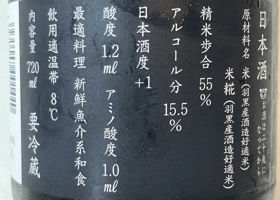 日本酒
お酒は二十歳になってから
原材料名 米(羽黒産酒造好適米)
米糀(羽黒産酒造好適米)
精米歩合 55%
アルコール分 15.5%
日本酒度 +1
酸度 1.2ml アミノ酸度 1.0ml
最適料理 新鮮魚介系和食
飲用適温帯 8℃
内容量 720ml 要冷蔵